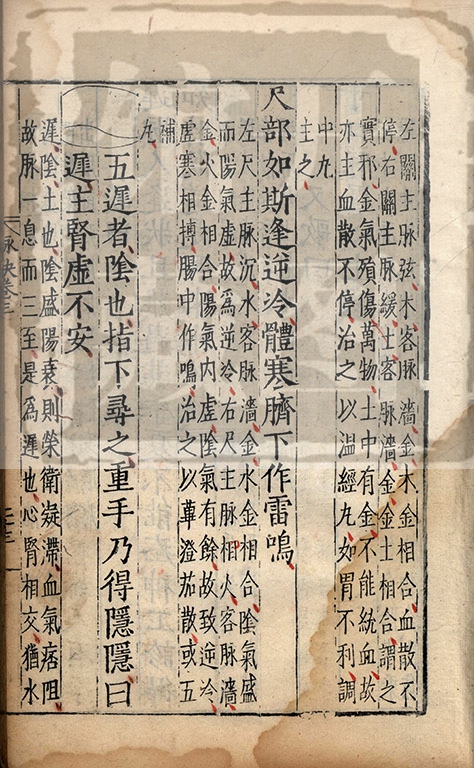 左關主脉弦木客脉濇金木金相合血散不
停右關主脉緩土客脉濇金金土相合謂之
實邪金氣殞傷萬物土中有金不能統血故
亦主血散不停治之以温經丸如胃不利調
中丸
主之
尺部如斯逢逆冷體寒臍下作雷鳴
左尺主脉沉水客脉濇金水金相合陰氣盛
而陽氣虚故為逆冷右尺主脉相火客脉濇
金火金相合陽氣内虚陰氣有餘故致逆冷
虚寒相搏腸中作鳴治之以蓽澄茄散或五
補
丸
五遲者陰也指下尋之重手乃得隱隱曰
遲主腎虚不安
遲陰土也陰盛陽衰則榮衛凝滯血氣痞阻
故脉一息而三至是為遲也心腎相交猶水
脉訣卷三